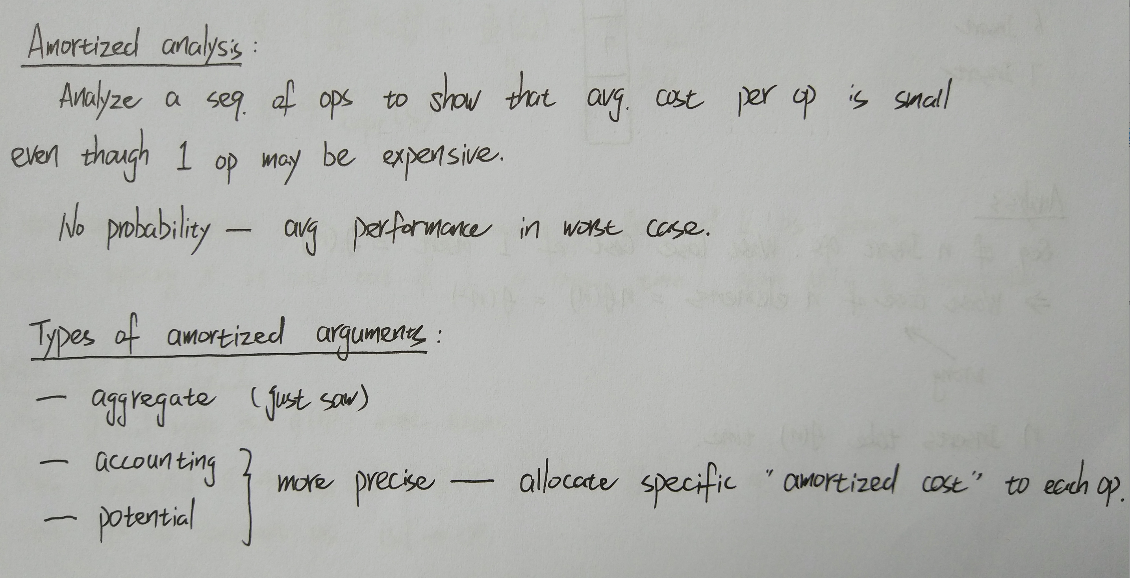 Amortized analysis:
Analyze a seq. of ops to show that avg. cost per op is small
even though 1 op may be expensive.
No probability — avg performance in worst case.
Types of amortized arguments:
— aggregate (just saw)
— accounting
— potential
} more precise — allocate specific "amortized cost" to each op.